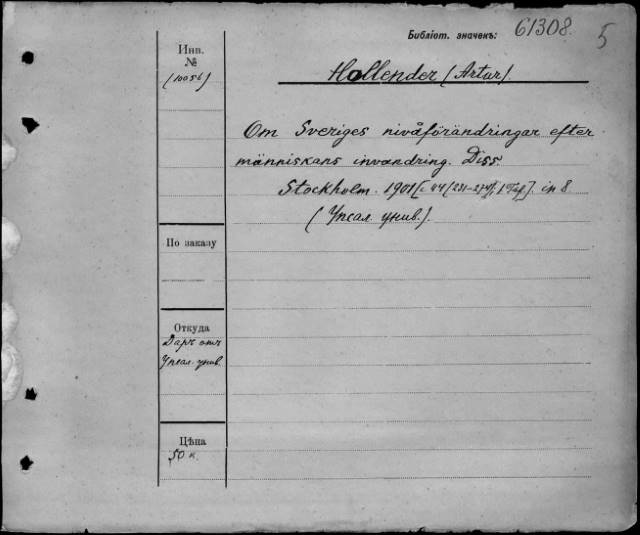 Библіот. значекъ: 61308. 5
Инв.
№
(10056)
Hollender (Artur).
Om Sveriges nivåförändringar efter
människans invandring. Diss
Stockholm. 1901 in 8
(Упсал. унив.).
По заказу
Откуда
Даръ отъ
Упсал. унив.
Цѣна
50 к.